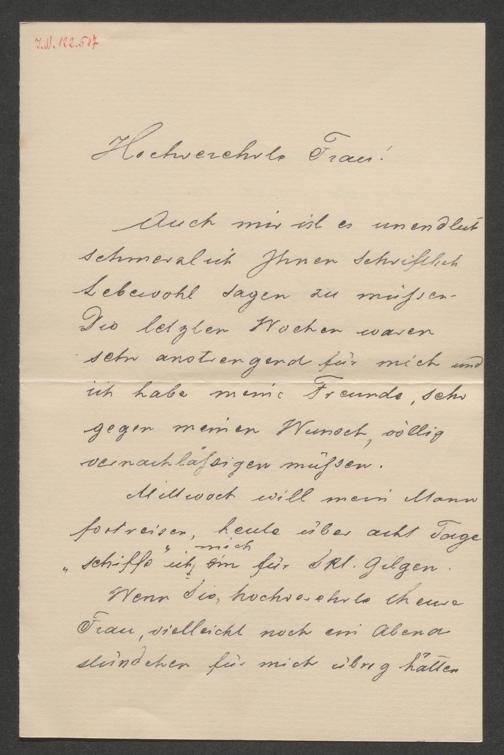 J.N. 122.517
Hochverehrte Frau!
Auch mir ist es unendlich
schmerzlich Ihnen schriftlich
Lebewohl sagen zu müssen.
Die letzten Wochen waren
sehr anstrengend für mich und
ich habe meine Freunde, sehr
gegen meinen Wunsch, völlig
vernachläßigen müssen.
Mittwoch will mein Mann
fortreisen, heute über acht Tage
mich
„schiffe" ich, ein für Skt. Gilgen.
Wenn Sie, hochverehrte theure
Frau, vielleicht noch ein Abend
stündchen für mich übrig hätten